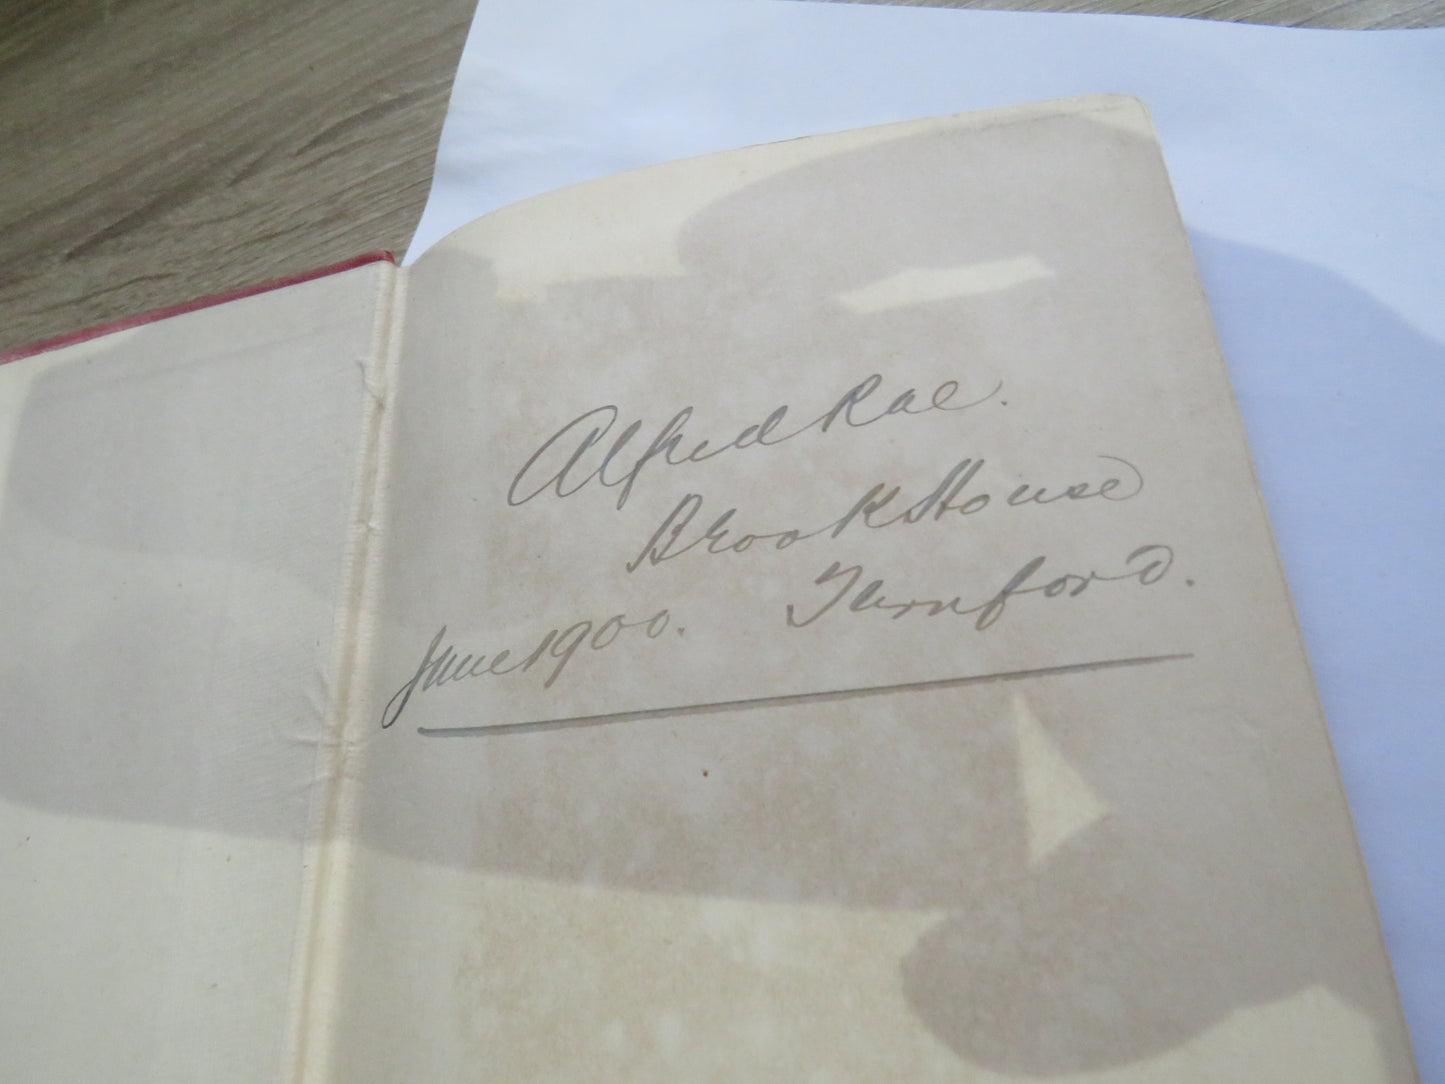 Alfred Rae.
Brook House
Turnford.
June 1900.